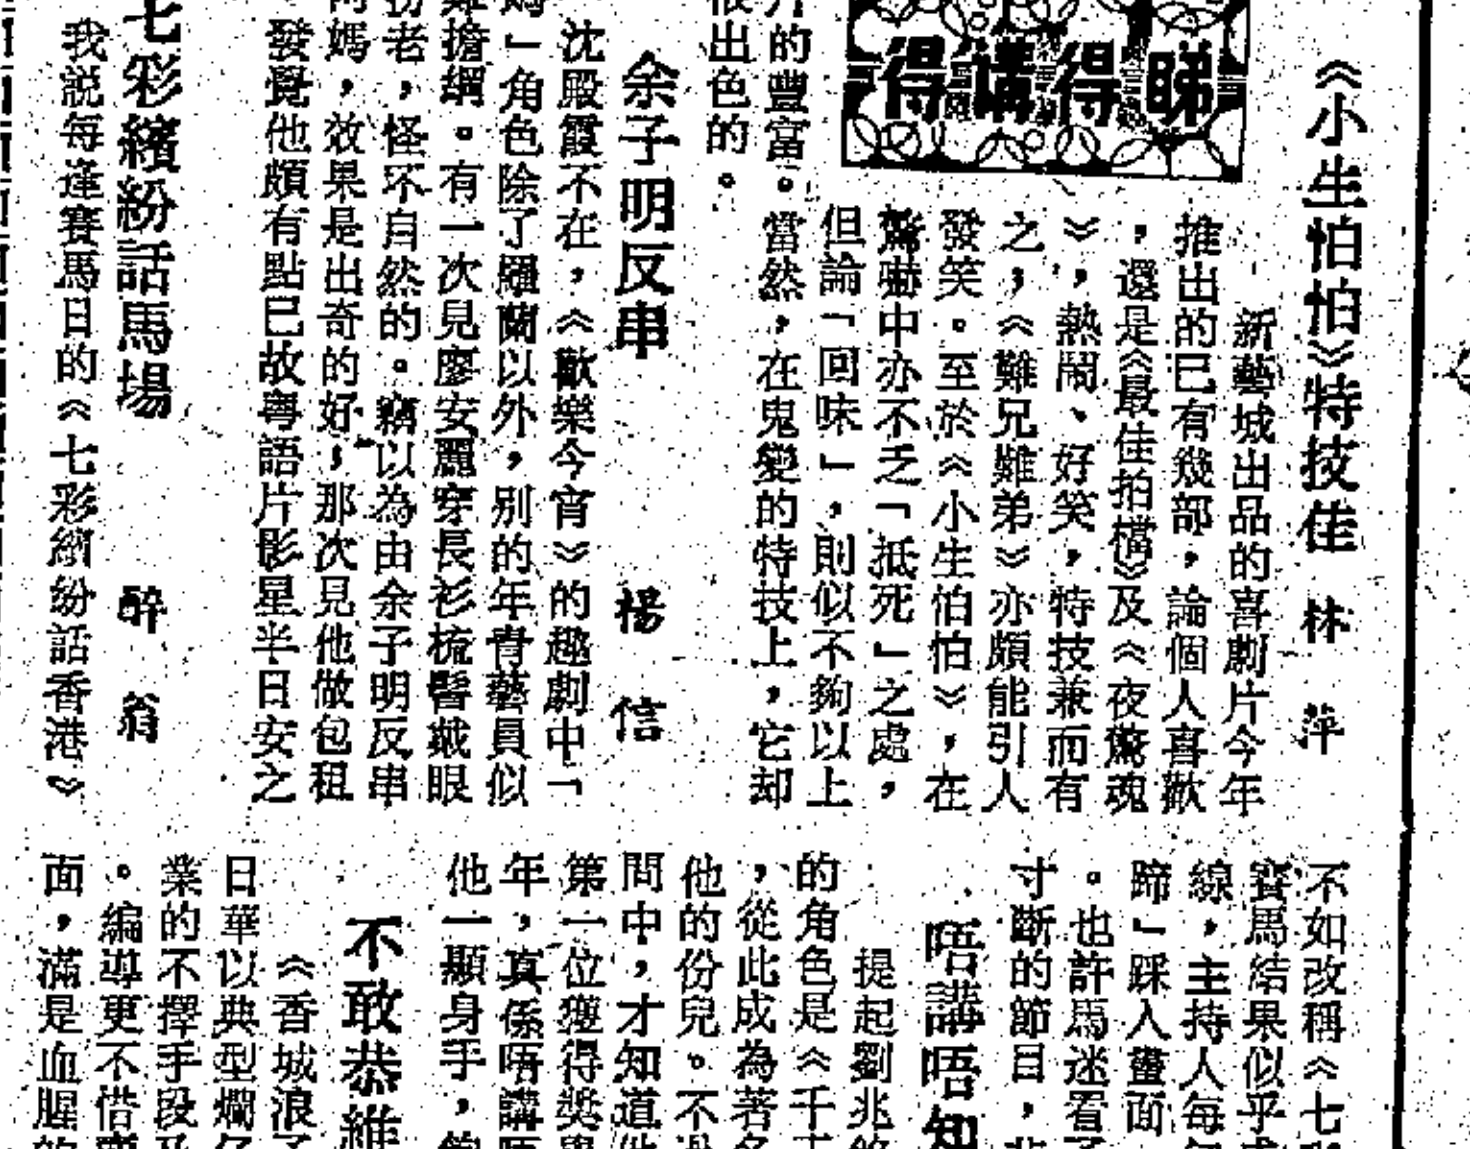 睇得講得
《小生怕怕》特技佳
林萍
新藝城出品的喜劇片今年
推出的已有幾部，論個人喜歡
，還是《最佳拍檔》及《夜驚魂
》，熱鬧、好笑，特技兼而有
之，《難兄難弟》亦頗能引人
發笑。至於《小生怕怕》，在
驚嚇中亦不乏「抵死」之處，
但論「回味」，則似不夠以上
當然，在鬼變的特技上，它却
片的豐富。
很出色的。
余子明反串
楊信
沈殿霞不在，《歡樂今宵》的趣劇中「
媽」角色除了羅蘭以外，别的年青藝員似
難擔綱。有一次見廖安麗穿長衫梳髻戴眼
扮老，怪不自然的。竊以為由余子明反串
媽，效果是出奇的好，那次見他做包租
發覺他頗有點已故粵語片影星半日安之
七彩繽紛話馬場
醉翁
我説每逢賽馬日的《七彩繽紛話香港》
不如改稱《七彩
賽馬結果似乎
線，主持人每
蹄」踩入畫面
。也許馬迷看
寸斷的節目，
唔講唔知
提起劉兆銘
的角色是《千
，從此成為著名
他的份兒。不過
問中，才知道
第一位獲得獎
年，真係唔講唔
他一顯身手，
不敢恭維
《香城浪子
日華以典型爛
業的不擇手段
。編導更不惜
面，滿是血腥的